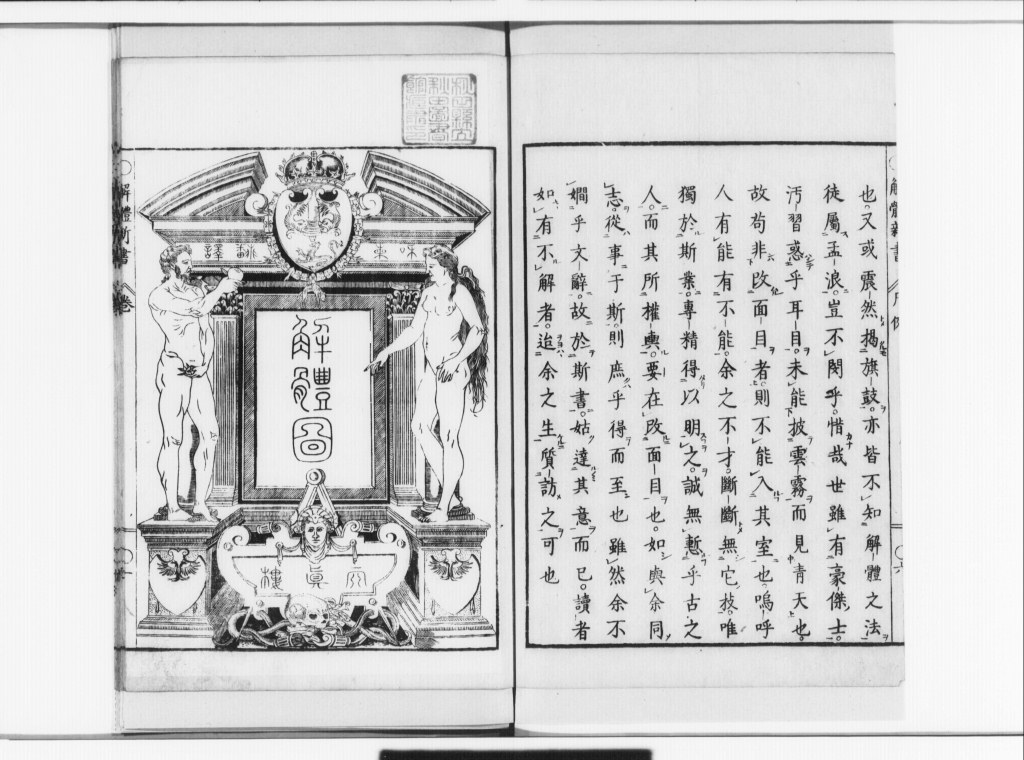 解體新書 凡例 六
也又或震然揭旗鼓。亦皆不知解體之法
徒屬孟浪。豈不閔乎。惜哉世雖有豪傑士。
汚習惑乎耳目。未能披雲霧而見青天也。
故苟非改面目者則不能入其室也嗚呼
人有能有不能。余之不才。斷斷無它技。唯
獨於斯業。專精得以明之。誠無慙乎古之
人。而其所權輿。要在改面目也。如與余同
志。從事于斯。則庶乎得而至也雖然余不
嫺乎文辭。故於斯書。姑達其意而已。讀者
如有不解者。迨余之生質訪之可也
東翻譯
解體圖
天眞樓
解體新書 卷